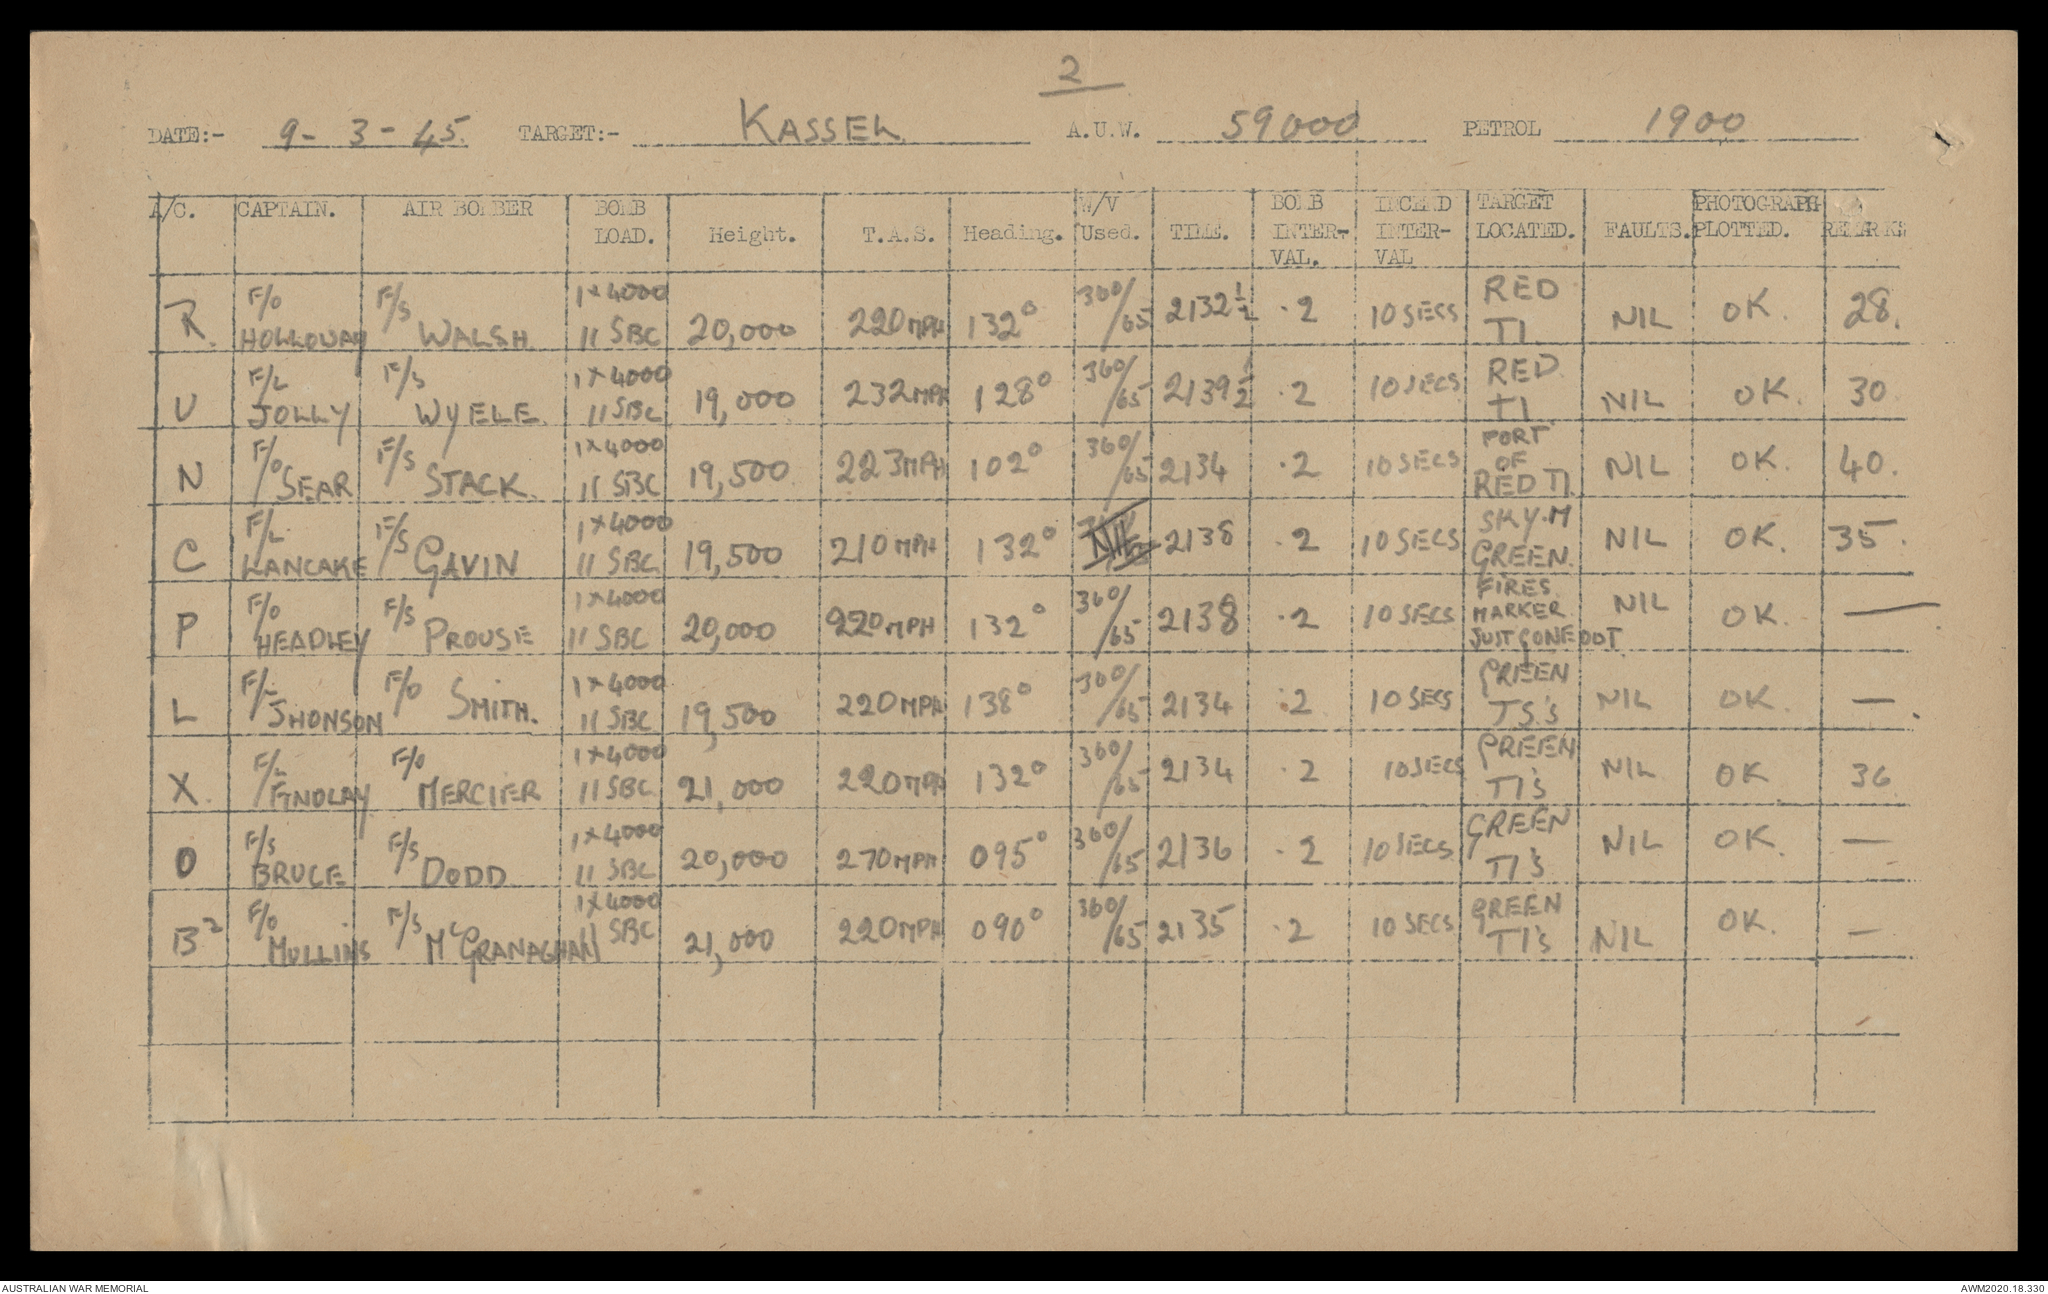 2
DATE:- 9-3-45. TARGET:- KASSEL A.U.W. 59000 PETROL 1900
A/C. CAPTAIN. AIR BOMBER BOMB LOAD. Height. T.A.S. Heading. W/V Used. TIME. BOMB INTER-VAL. INCEND INTER-VAL TARGET LOCATED. FAULTS. PHOTOGRAPH PLOTTED. REMARKS
R. F/O HOLLOWAY F/S WALSH. 1x4000 11 SBC 20,000 220 MPH 132° 360/65 2132½ .2 10 SECS RED TI. NIL OK. 28.
U F/L JOLLY F/S WYELE. 1x4000 11 SBC 19,000 232 MPH 128° 360/65 2139½ .2 10 SECS RED TI NIL OK. 30
N F/O SEAR F/S STACK. 1x4000 11 SBC 19,500 223 MPH 102° 360/65 2134 .2 10 SECS PORT OF RED TI. NIL OK. 40.
C F/L LANCAKE F/S GAVIN 1x4000 11 SBC. 19,500 210 MPH 132° 2138 .2 10 SECS SKY.M GREEN. NIL OK. 35.
P F/O HEADLEY F/S PROUSE 1x4000 11 SBC 20,000 220 MPH 132° 360/65 2138 .2 10 SECS FIRES. MARKER JUST GONE OOT NIL OK. —
L F/L JHONSON F/O SMITH. 1x4000 11 SBC 19,500 220 MPH 138° 360/65 2134 .2 10 SECS GREEN TS.'s NIL OK. —
X. F/L FINDLAY F/O MERCIER 1x4000 11 SBC. 21,000 220 MPH 132° 360/65 2134 .2 10 SECS GREEN TI's NIL OK 36
O F/S BRUCE F/S DODD 1x4000 11 SBC 20,000 270 MPH 095° 360/65 2136 .2 10 SECS GREEN TI's NIL OK. —
B2 F/O MULLINS F/S McGRANAGHAN 1x4000 11 SBC 21,000 220 MPH 090° 360/65 2135 .2 10 SECS GREEN TI's NIL OK. —
AUSTRALIAN WAR MEMORIAL AWM2020.18.330